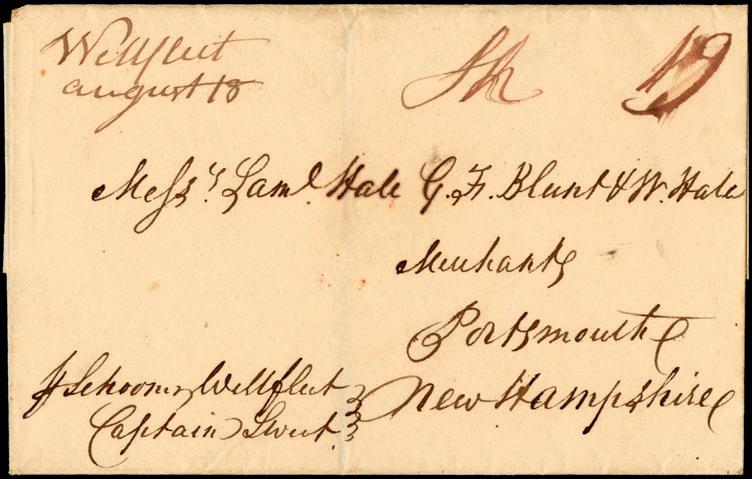 Wellfleet
august 18
Sh 19
Messrs. Saml. Hale G. F. Blunt & W. Hale
Merchants
Portsmouth
New Hampshire
Schooner Wellfleet
Captain Swett.